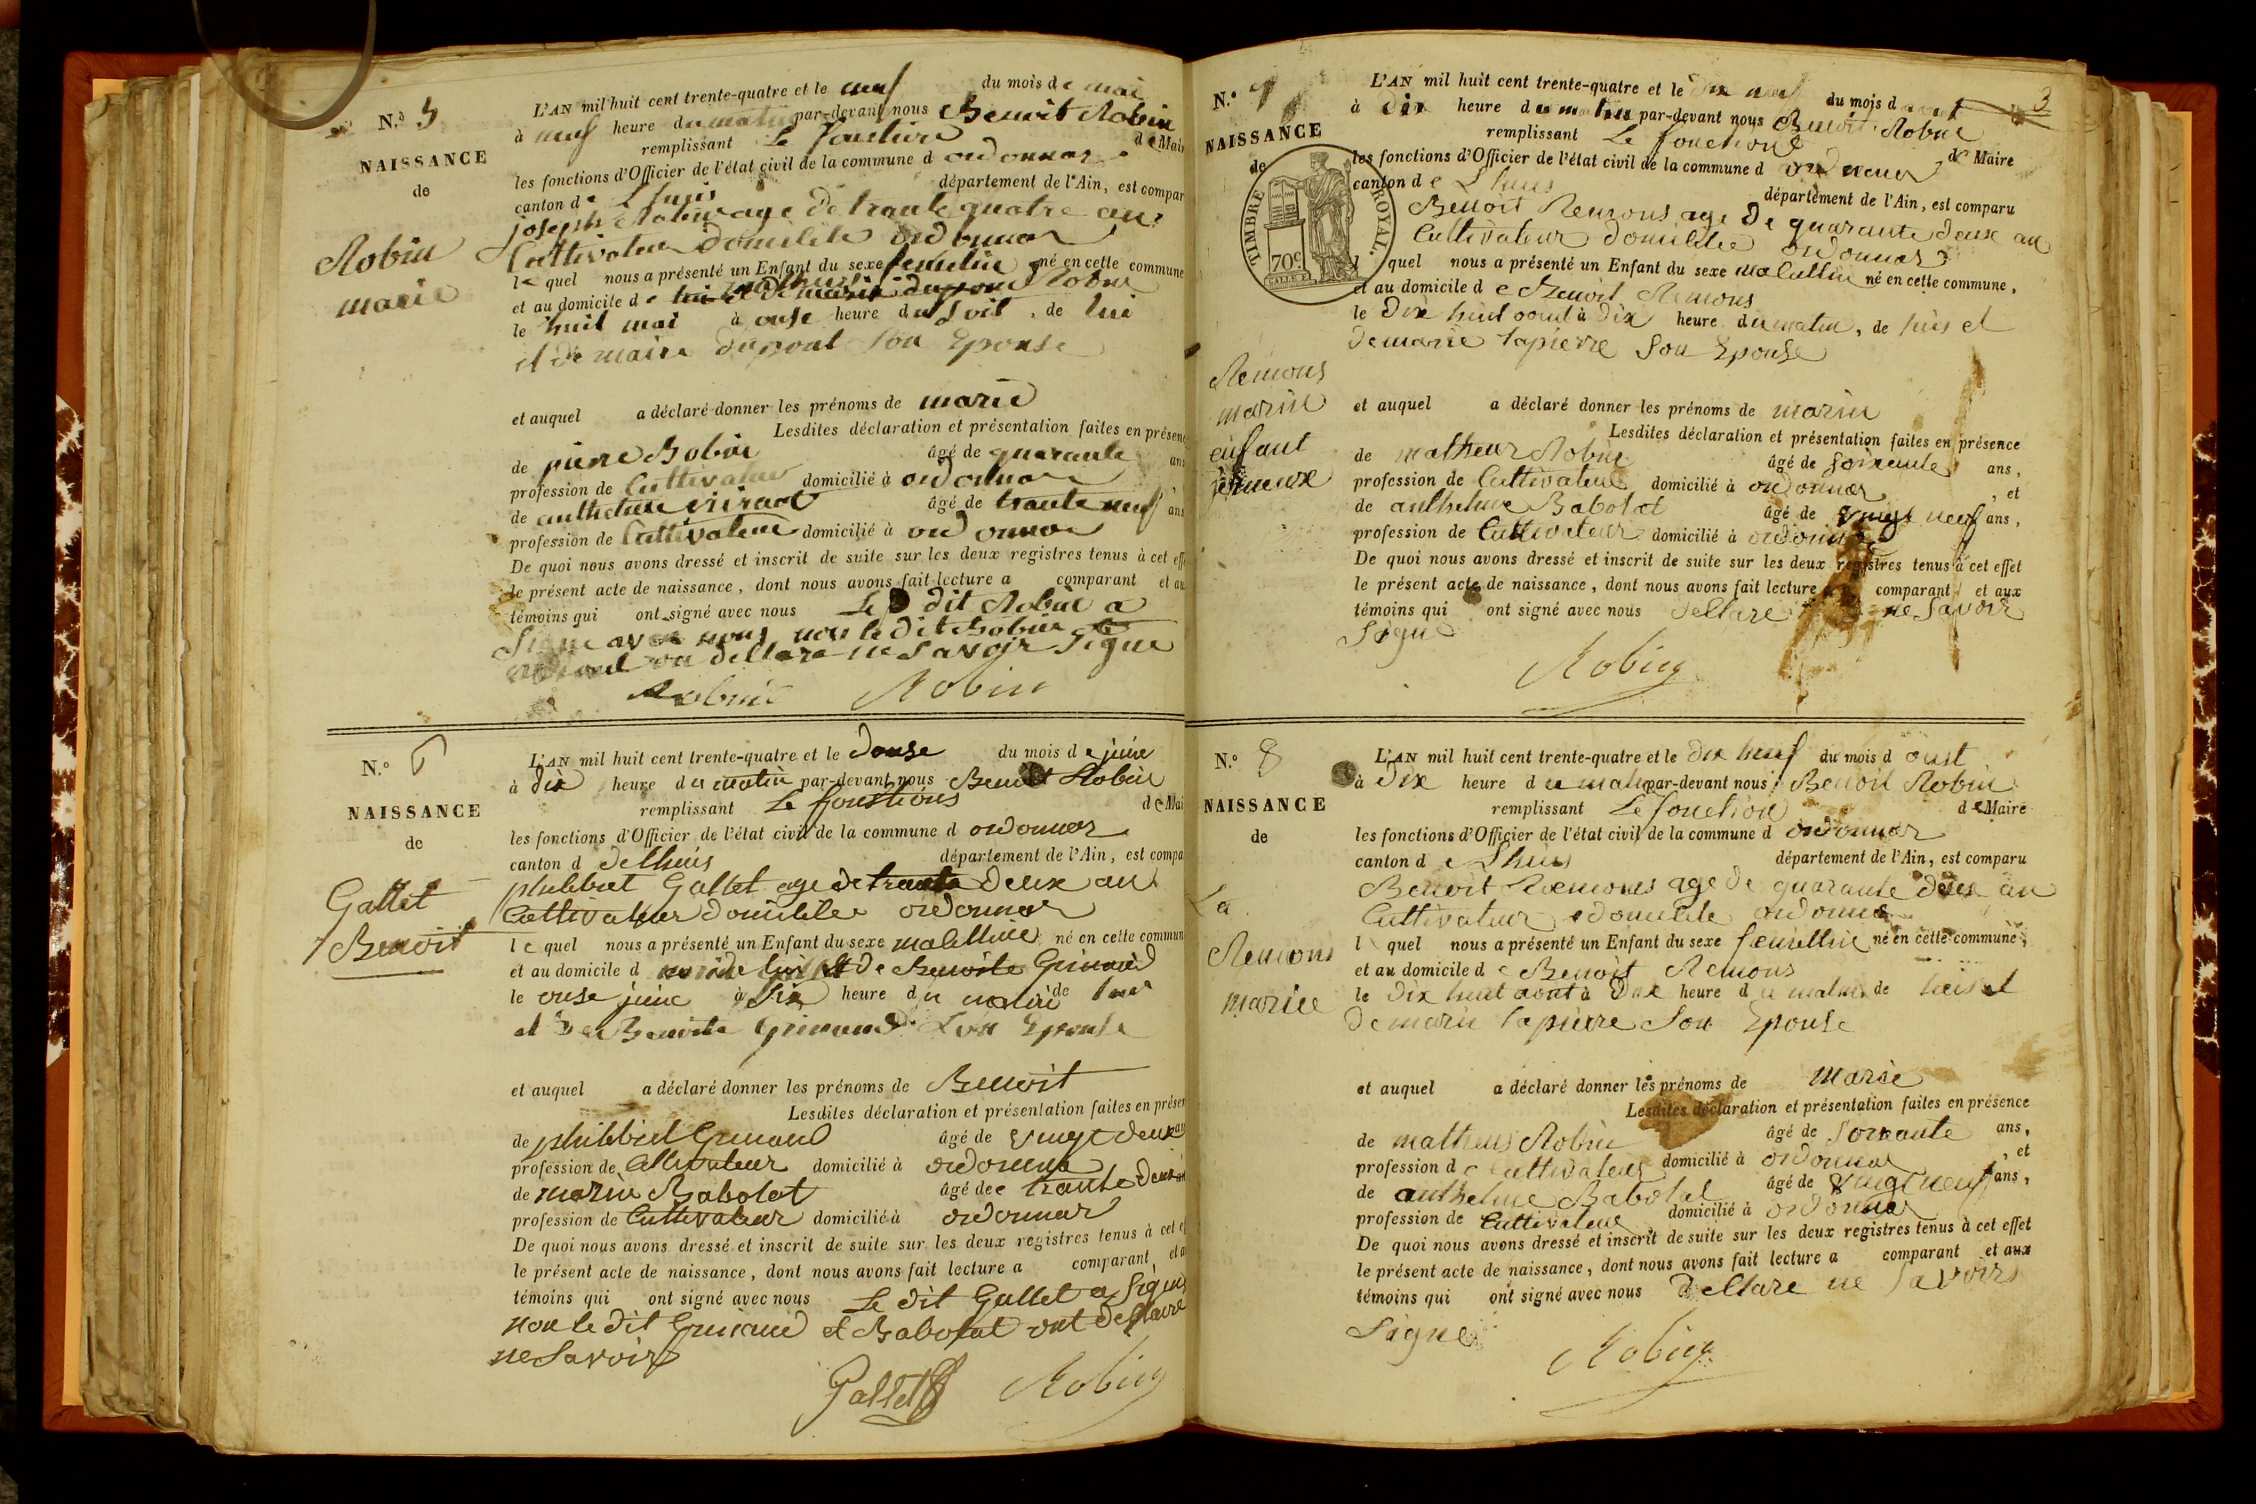 N.o 5
NAISSANCE
de
Robin
marie
L'AN mil huit cent trente-quatre et le neuf du mois de mai
à neuf heure du matin par-devant nous Benoit Robin
remplissant Le fonction de Mair
les fonctions d'Officier de l'état civil de la commune d ordonnas
canton de Lhuis département de l'Ain, est compar
joseph Robin age de trante quatre ans
Cultivateur domicilile ordonnas
le quel nous a présenté un Enfant du sexe femelin né en cette commune
et au domicile de Robin
le huit mai à onse heure du soit, de lui
et de marie dupont son Epouse
et auquel a déclaré donner les prénoms de marie
Lesdites déclaration et présentation faites en présenc
de pierre Bobin âgé de quarante ans
profession de Cultivateur domicilié à ordonnas
de anthelme âgé de trante neuf ans
profession de Cultivateur domicilié à ordonnas
De quoi nous avons dressé et inscrit de suite sur les deux registres tenus à cet effe
le présent acte de naissance, dont nous avons fait lecture a comparant et au
témoins qui ont signé avec nous Le dit Robin a
Signe avec nous non le dit Bobin
ont dellare ne savoir signe
Robin Robin
N.o 6
NAISSANCE
de
Gallet
Benoit
L'AN mil huit cent trente-quatre et le douse du mois de juin
à dix heure du matin par-devant nous Benoit Robin
remplissant Le fonstions de Mai
les fonctions d'Officier de l'état civil de la commune d ordonnas
canton d delhuis département de l'Ain, est compa
phillibert Gallet age de trante deux ans
Cultivateur domicilile ordonnas
le quel nous a présenté un Enfant du sexe malelline né en cette commun
et au domicile d de lui et de Benoite Grinand
le onse juin à six heure du matin de lui
et de Benoite Grinand son Epouse
et auquel a déclaré donner les prénoms de Benoit
Lesdites déclaration et présentation faites en présen
de phillibert Grinand âgé de vingt deux an
profession de Cultivateur domicilié à ordonnas
de marin Babolat âgé de trante deux
profession de Cultivateur domicilié à ordonnas
De quoi nous avons dressé et inscrit de suite sur les deux registres tenus à cet ef
le présent acte de naissance, dont nous avons fait lecture a comparant, et a
témoins qui ont signé avec nous Le dit Gallet a signe
non le dit Grinand et Babolat ont dellare
ne savoir
Gallet Robin
3
N.o 7
NAISSANCE
de
TIMBRE ROYAL.
70c.
Remons
marin
enfant
jemeux
L'AN mil huit cent trente-quatre et le dix neuf du mois d aout
à dix heure du matin par-devant nous Benoit Robin
remplissant Le fonction de Maire
les fonctions d'Officier de l'état civil de la commune d ordonnas
canton de Lhuis département de l'Ain, est comparu
Benoit Remons age de quarante deux an
Cultivateur domicilile ordonnas
l quel nous a présenté un Enfant du sexe malelline né en cette commune,
et au domicile de Benoit Remons
le dix huit aout à dix heure du matin, de luis et
de marie lapierre son Epouse
et auquel a déclaré donner les prénoms de marin
Lesdites déclaration et présentation faites en présence
de matheus Robin âgé de soixante ans,
profession de Cultivateur domicilié à ordonnas, et
de anthelme Babolat âgé de vingt neuf ans,
profession de Cultivateur domicilié à ordonnas
De quoi nous avons dressé et inscrit de suite sur les deux registres tenus à cet effet
le présent acte de naissance, dont nous avons fait lecture comparant et aux
témoins qui ont signé avec nous dellare ne savoir
Signe
Robin
N.o 8
NAISSANCE
de
La
Remons
Marie
L'AN mil huit cent trente-quatre et le dix neuf du mois d oust
à dix heure du matin par-devant nous Benoit Robin
remplissant Le fonction de Maire
les fonctions d'Officier de l'état civil de la commune d ordonnas
canton de Lhuis département de l'Ain, est comparu
Benoit Remons age de quarante deux an
Cultivateur domicilile ordonnas
l quel nous a présenté un Enfant du sexe femelline né en cette commune,
et au domicile de Benoit Remons
le dix huit aout à dix heure du matin de luis et
de marie lapierre son Epouse
et auquel a déclaré donner les prénoms de Marie
Lesdites déclaration et présentation faites en présence
de matheus Robin âgé de soixante ans,
profession de Cultivateur domicilié à ordonnas, et
de anthelme Babolat âgé de vingt neuf ans,
profession de Cultivateur domicilié à ordonnas
De quoi nous avons dressé et inscrit de suite sur les deux registres tenus à cet effet
le présent acte de naissance, dont nous avons fait lecture a comparant et aux
témoins qui ont signé avec nous dellare ne savoir
Signe
Robin